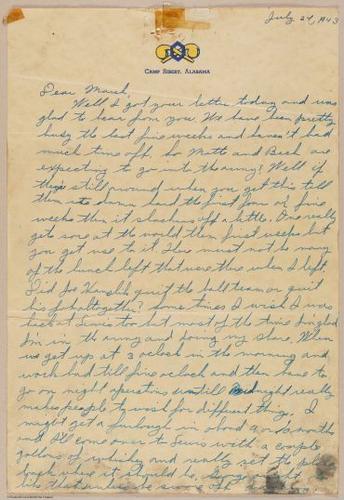 July 24, 1943
CAMP SIBERT, ALABAMA
Dear Marsh,
Well I got your letter today and was
glad to hear from you. We have been pretty
busy the last five weeks and haven't had
much time off. So Matte and Beck are
expecting to go into the army? Well if
they're still around when you get this tell
them its damn hard the first four or five
weeks then it slackens off a little. One really
gets sore at the world them first weeks but
you get use to it. There must not be many
of the bunch left that were there when I left.
Did Joe quit the ball team or quit
his job altogether? Some times I wish I was
back at Sears too but most of the time I'm glad
I'm in the army and doing my share. When
we get up at 3 oclock in the morning and
work hard till five oclock and then have to
go on night operations untill midnight really
makes people wish for different things. I
might get a furlough in about a months
and I'll come over to Sears with a couple
gallons of whisky and really set the place
back where it should be.
like that unless he swore off